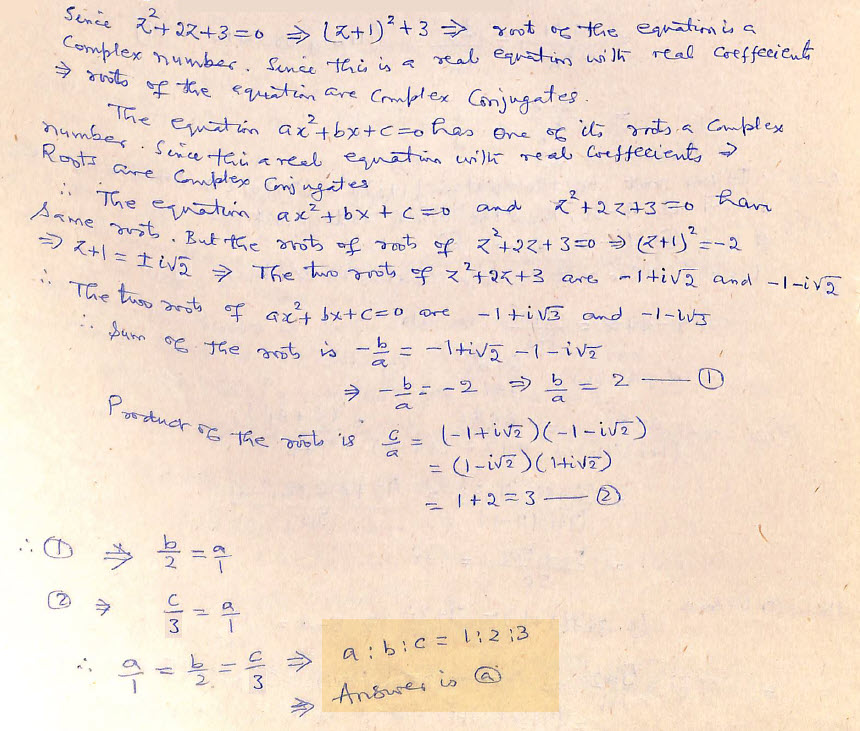 Since z²+2z+3=0 ⇒ (z+1)²+3 ⇒ root of the equation is a
Complex number. Since this is a real equation with real Coeffecients
⇒ roots of the equation are Complex Conjugates.
The equation ax²+bx+c=0 has one of its roots a Complex
number. Since this a real equation with real Coeffecients ⇒
Roots are Complex Conjugates
∴ The equation ax²+bx+c=0 and z²+2z+3=0 have
Same roots. But the roots of roots of z²+2z+3=0 ⇒ (z+1)²=-2
⇒ z+1 = ±i√2 ⇒ The two roots of z²+2z+3 are -1+i√2 and -1-i√2
∴ The two roots of ax²+bx+c=0 are -1+i√3 and -1-i√3
∴ Sum of the roots is -b/a = -1+i√2 -1-i√2
⇒ -b/a = -2 ⇒ b/a = 2 — ①
Product of the roots is c/a = (-1+i√2)(-1-i√2)
= (1-i√2)(1+i√2)
= 1+2=3 — ②
∴ ① ⇒ b/2 = a/1
② ⇒ c/3 = a/1
∴ a/1 = b/2 = c/3 ⇒ a:b:c = 1:2:3
⇒ Answer is ⓐ